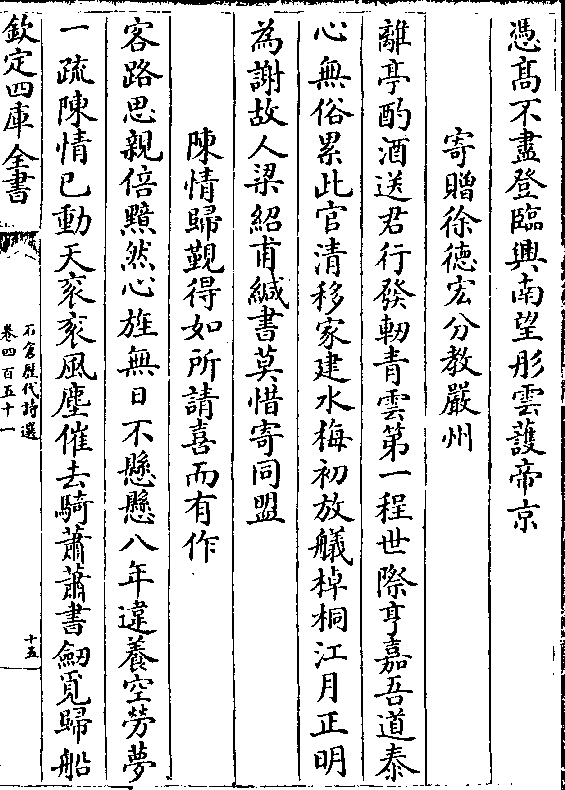 憑髙不盡登臨興南望彤雲䕶帝京
寄贈徐德宏分教嚴州
離亭酌酒送君行發軔青雲第一程世際亨嘉吾道泰
心無俗累此官清移家建水梅初放艤棹桐江月正明
為謝故人梁紹甫緘書莫惜寄同盟
陳情歸覲得如所請喜而有作
客路思親倍黯然心旌無日不懸懸八年違養空勞夢
一疏陳情已動天衮衮風塵催去騎蕭蕭書劒覓歸船
欽定四庫全書
石倉歷代詩選
卷四百五十一
十五